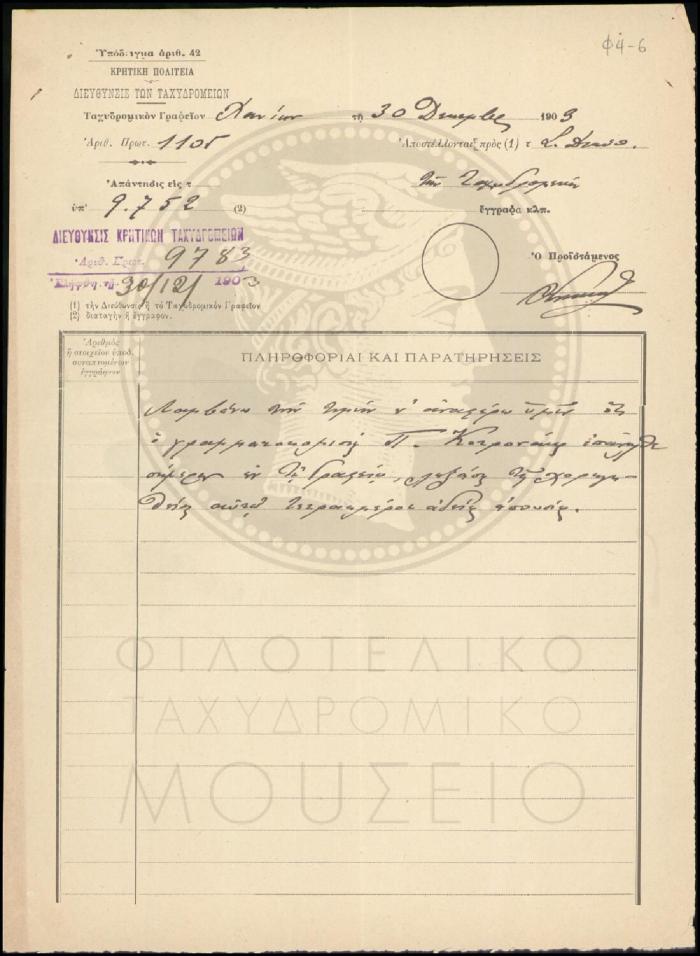 Φ4-6
Ὑπόδειγμα ἀριθ. 42
ΚΡΗΤΙΚΗ ΠΟΛΙΤΕΙΑ
ΔΙΕΥΘΥΝΣΙΣ ΤΩΝ ΤΑΧΥΔΡΟΜΕΙΩΝ
Ταχυδρομικὸν Γραφεῖον Χανίων τῇ 30 Δεκεμβρ 1903
Ἀριθ. Πρωτ. 1105 Ἀποστέλλονται πρὸς (1) τ
Ἀπάντησις εἰς τ τῶν Ταχυδρομείων
ὑπ' 9.752 (2) ἔγγραφα κλπ.
ΔΙΕΥΘΥΝΣΙΣ ΚΡΗΤΙΚΩΝ ΤΑΧΥΔΡΟΜΕΙΩΝ
Ἀριθ. Πρωτ. 9783
Ἐλήφθη τῇ 30/12/ 1903
Ὁ Προϊστάμενος
(1) τὴν Διεύθυνσιν ἢ τὸ Ταχυδρομικὸν Γραφεῖον
(2) διαταγὴν ἢ ἔγγραφον.
Ἀριθμὸς
ἢ στοιχεῖον ὑποδ.
συναπτομένων
ἐγγράφων
ΠΛΗΡΟΦΟΡΙΑΙ ΚΑΙ ΠΑΡΑΤΗΡΗΣΕΙΣ
Λαμβάνω τὴν τιμὴν ν' ἀναφέρω ὑμῖν ὅτι
ὁ γραμματοκομιστὴς Π. ἐπανῆλθε
σήμερον ἐν τῷ Γραφείῳ, ληξάσης τῆς χορηγη-
θείσης αὐτῷ τετραημέρου ἀδείας ἀπουσίας.
ΦΙΛΟΤΕΛΙΚΟ
ΤΑΧΥΔΡΟΜΙΚΟ
ΜΟΥΣΕΙΟ